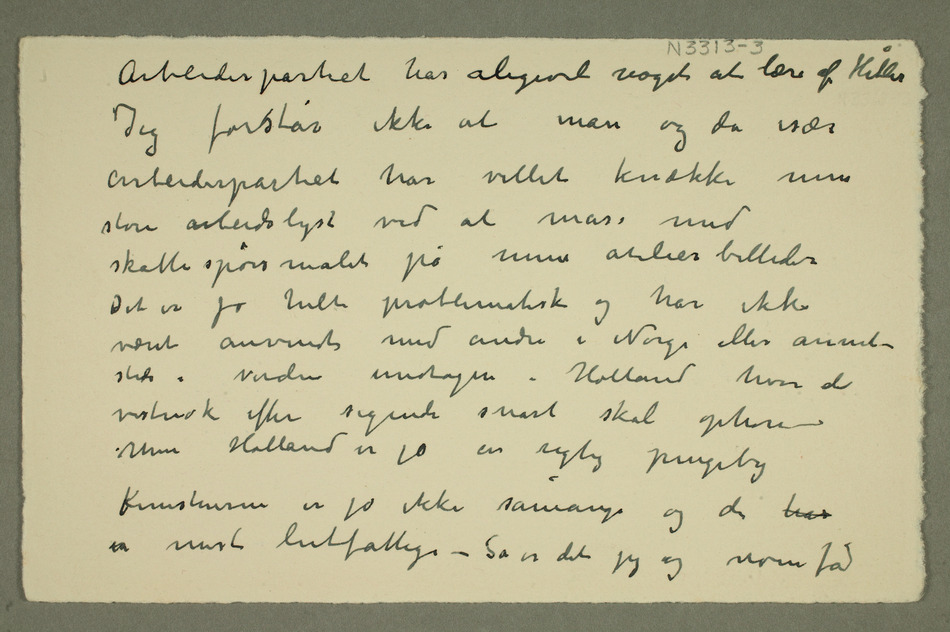 N3313-3
Arbeiderpartiet har aligevel noget at lære af Hitler
Jeg forstår ikke at man og da især
arbeiderpartiet har villet knække min
store arbeidslyst ved at mase med
skattespörsmalet på mine atelier billeder
Det er jo helt problematisk og har ikke
været anvendt med andre i Norge eller annet-
steds i verden undtagen i Holland hvor de
vistnok efter sigende snart skal ophøre –
Men Holland er jo en rigtig pengeby
Kunstnerne er jo ikke såmange og de har
er mest lutfattige – Så er det jeg og noen få